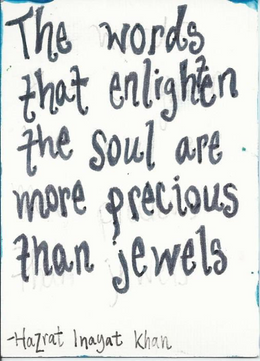 The words
that enlighten
the soul are
more precious
than jewels
-Hazrat Inayat Khan